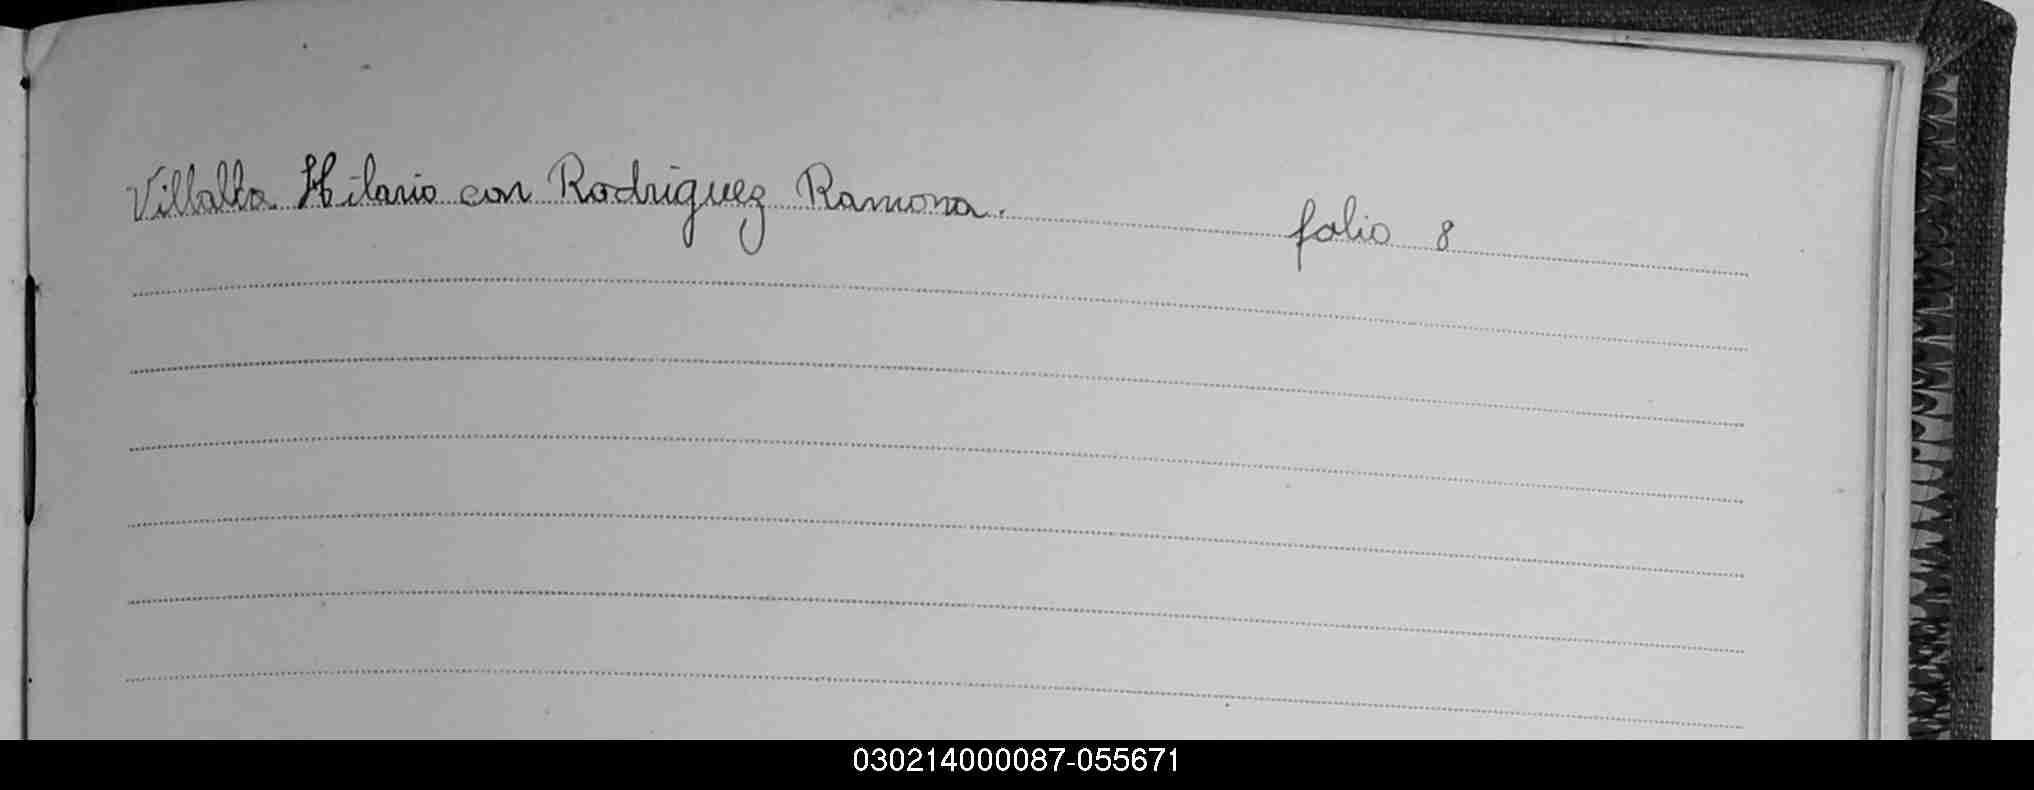 Villalba Hilario con Rodriguez Ramona. folio 8
030214000087-055671